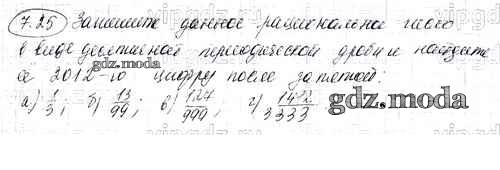 7.25 Запишите данное рациональное число
в виде десятичной периодической дроби и найдите
ее 2012-ю цифру после запятой:
а) 1/3; б) 13/99; в) 127/999; г) 3 1472/3333
gdz.moda
gdz.moda